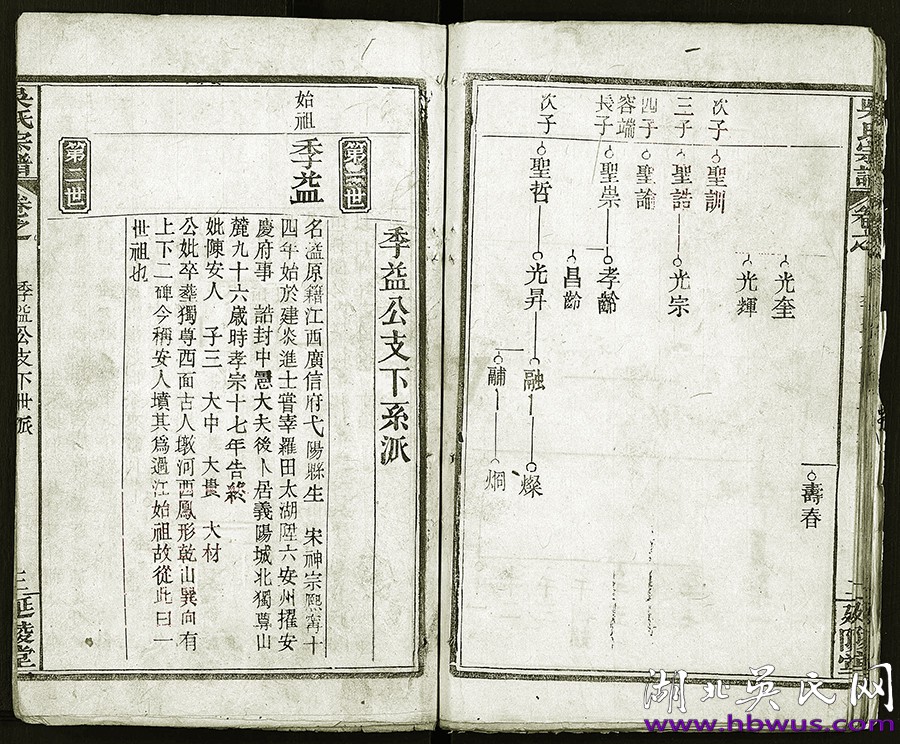 次子
聖訓
三子
聖誥
四子
聖諭
容端
長子
聖崇
次子
聖哲
光奎
光輝
光宗
孝齡
昌齡
光昇
融
黼
燦
烱
壽春
二
季益公支下系派
第一世
始祖
季益
名溢原籍江西廣信府弋陽縣生 宋神宗熙甯十
四年始於建炎進士嘗宰羅田太湖陞六安州擢安
慶府事 誥封中憲大夫後卜居義陽城北獨尊山
麓九十六歲時孝宗十七年告終
妣陳安人 子三 大中 大貴 大材
公妣卒葬獨尊西面古人墩河西鳳形乾山巽向有
上下二碑今稱安人墳其爲過江始祖故從此曰一
世祖也
第二世
吳氏宗譜
卷之一
季益公支下世派
三
延陵堂
湖北吴氏网
www.hbwus.com